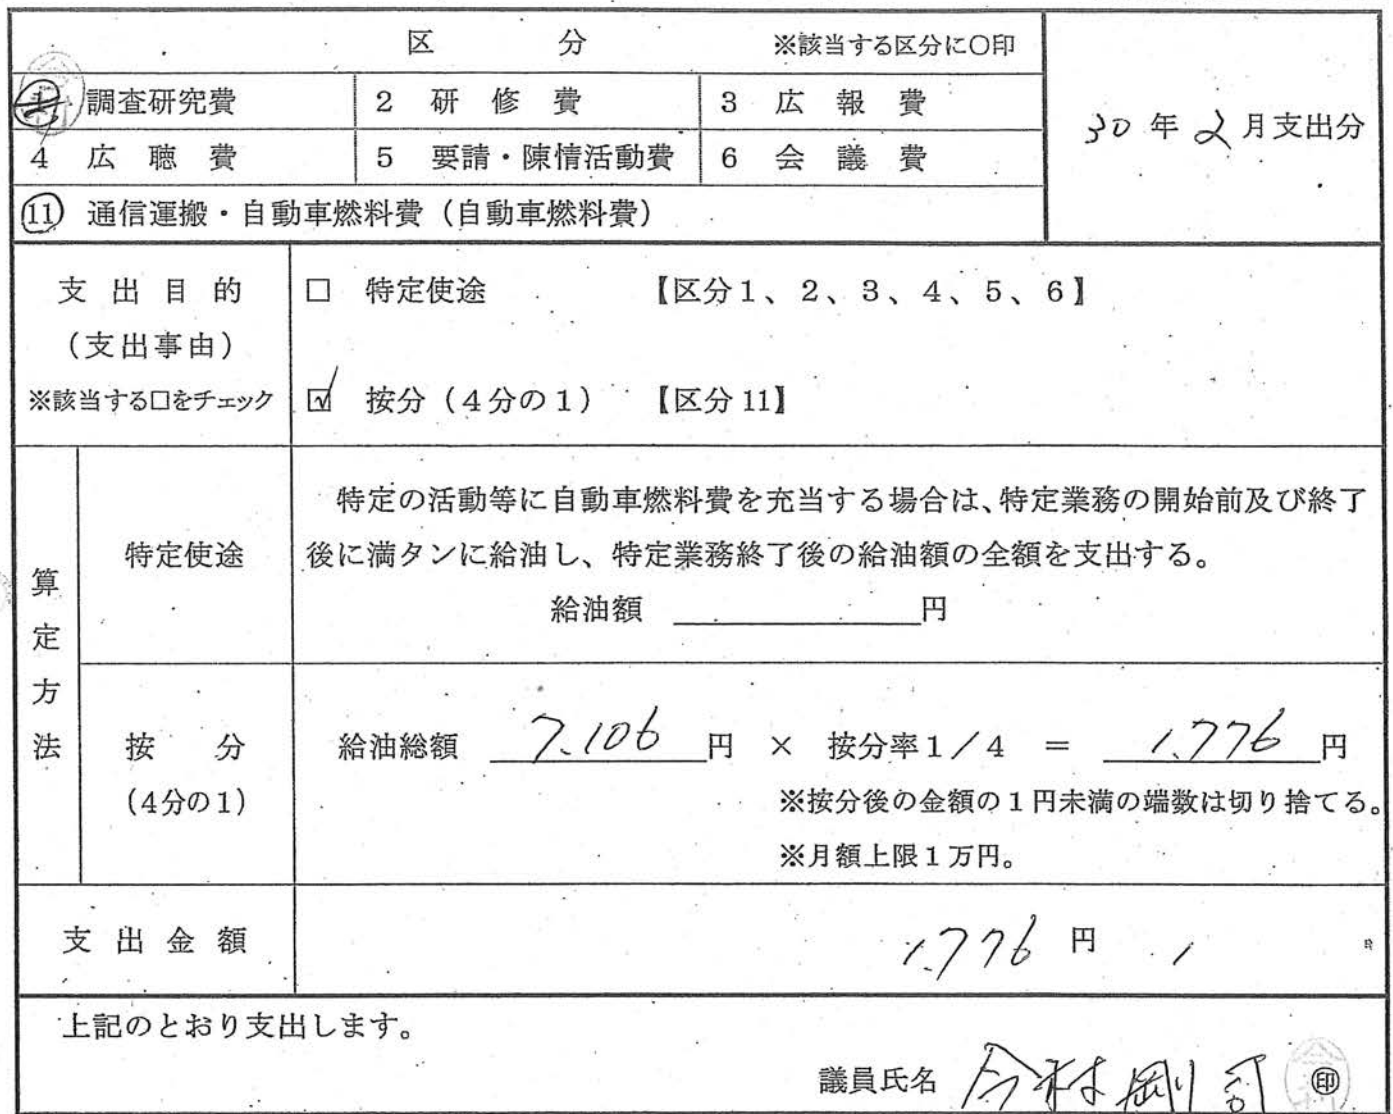 区　分　※該当する区分に〇印
1 調査研究費　2 研修費　3 広報費
30年2月支出分
4 広聴費　5 要請・陳情活動費　6 会議費
11 通信運搬・自動車燃料費（自動車燃料費）
支出目的
（支出事由）
※該当する□をチェック
□ 特定使途　【区分1、2、3、4、5、6】
☑ 按分（4分の1）　【区分11】
算定方法
特定使途
特定の活動等に自動車燃料費を充当する場合は、特定業務の開始前及び終了
後に満タンに給油し、特定業務終了後の給油額の全額を支出する。
給油額　円
按分
(4分の1)
給油総額 7.106 円 × 按分率1／4 ＝ 1.776 円
※按分後の金額の1円未満の端数は切り捨てる。
※月額上限1万円。
支出金額 1.776 円
上記のとおり支出します。
議員氏名 今村剛司 ㊞